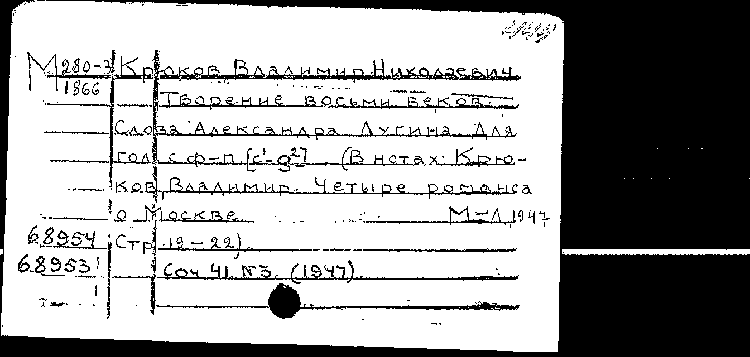 М 280-3 Крюков, Владимир Николаевич
1866
Творение восьми веков.
Слова Александра Лугина. Для
гол. с ф-п. [c¹-g²]. (В нотах: Крю-
ков, Владимир. Четыре романса
о Москве. М-Л, 1947
68954 Стр. 12-22).
68953 Соч. 41 №3. (1947).